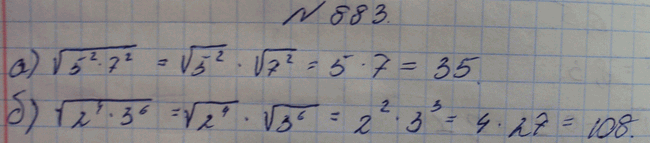 № 883.
а) √(5²·7²) = √5² · √7² = 5 · 7 = 35.
б) √(2⁴·3⁶) = √2⁴ · √3⁶ = 2² · 3³ = 4 · 27 = 108.